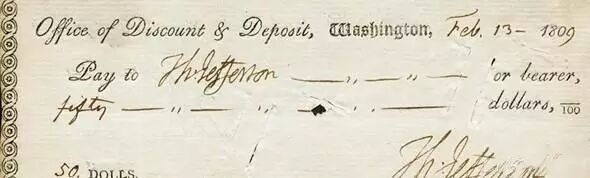 Office of Discount & Deposit, Washington, Feb. 13 – 1809
Pay to Th Jefferson — „ — „ — or bearer,
fifty — „ — „ — „ — dollars, /100
Th Jefferson
50. DOLLS.